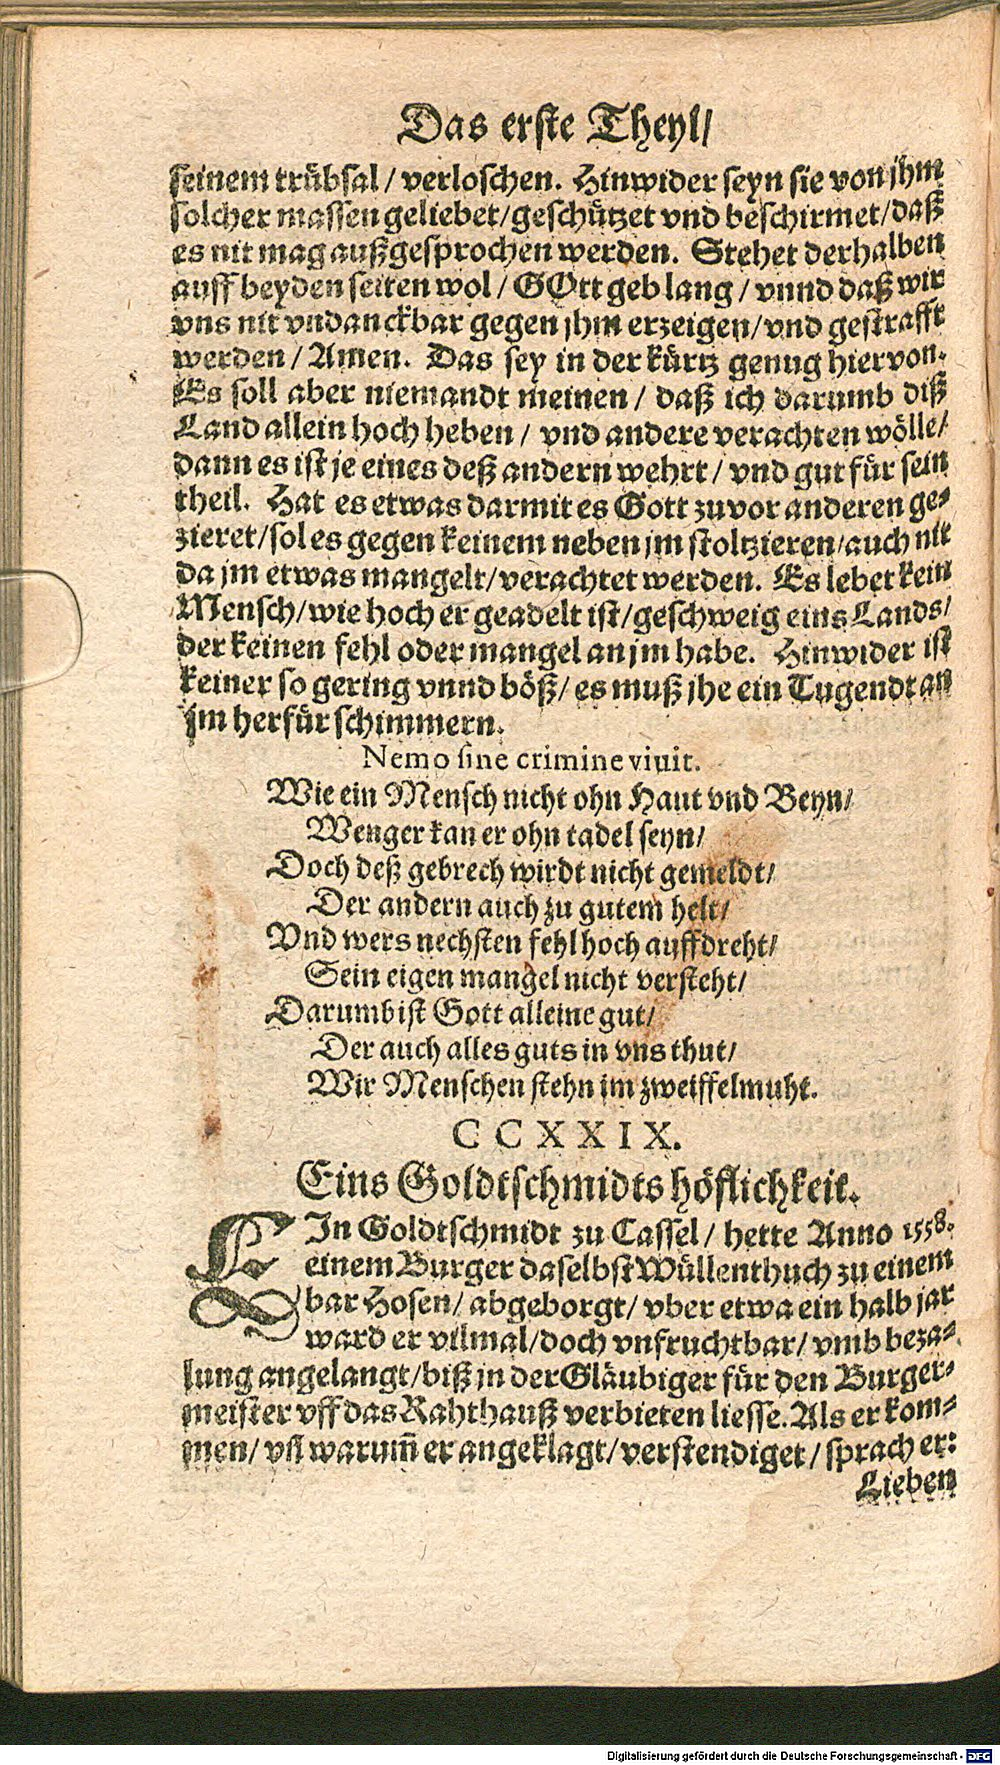 Das erste Theyl/
seinem trübsal/ verloschen. Hinwider seyn sie von jhm
solcher massen geliebet/geschützet vnd beschirmet/daß
es nit mag außgesprochen werden. Stehet derhalben
auff beyden seiten wol/ GOtt geb lang/ vnnd daß wir
vns nit vndanckbar gegen jhm erzeigen/vnd gestrafft
werden/ Amen. Das sey in der kürtz genug hiervon.
Es soll aber niemandt meinen/ daß ich darumb diß
Land allein hoch heben/ vnd andere verachten wölle/
dann es ist je eines deß andern wehrt/ vnd gut für sein
theil. Hat es etwas darmit es Gott zuvor anderen ge-
zieret/sol es gegen keinem neben jm stoltzieren/auch nit
da jm etwas mangelt/verachtet werden. Es lebet kein
Mensch/wie hoch er geadelt ist/geschweig eins Lands/
der keinen fehl oder mangel an jm habe. Hinwider ist
keiner so gering vnnd böß/ es muß jhe ein Tugendt an
jm herfür schimmern.
Nemo sine crimine viuit.
Wie ein Mensch nicht ohn Haut vnd Beyn/
Wenger kan er ohn tadel seyn/
Doch deß gebrech wirdt nicht gemeldt/
Der andern auch zu gutem helt/
Vnd wers nechsten fehl hoch auffdreht/
Sein eigen mangel nicht versteht/
Darumb ist Gott alleine gut/
Der auch alles guts in vns thut/
Wir Menschen stehn im zweiffelmuht.
CCXXIX.
Eins Goldtschmidts höflichkeit.
EIn Goldtschmidt zu Cassel/ hette Anno 1558.
einem Burger daselbst Wüllenthuch zu einem
bar Hosen/ abgeborgt/ vber etwa ein halb jar
ward er vilmal/doch vnfruchtbar/ vmb beza-
lung angelangt/biß jn der Gläubiger für den Burger-
meister vff das Rahthauß verbieten liesse. Als er kom-
men/ vñ warum̃ er angeklagt/verstendiget/ sprach er:
Lieben
Digitalisierung gefördert durch die Deutsche Forschungsgemeinschaft - DFG